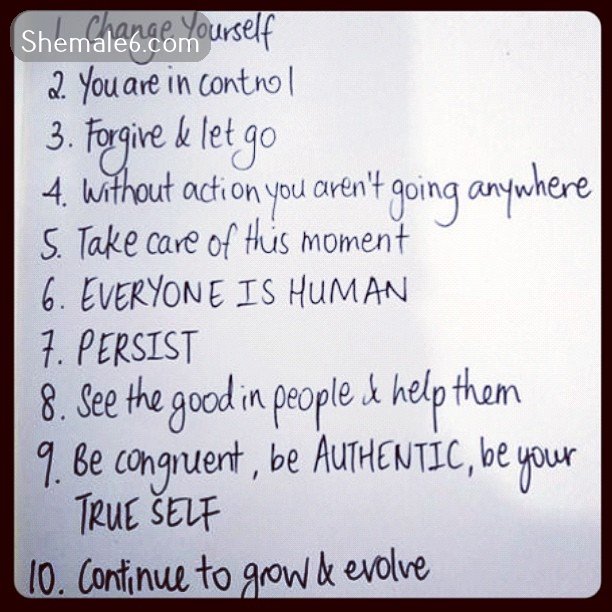 Shemale6.com
1. Change Yourself
2. You are in control
3. Forgive & let go
4. Without action you aren't going anywhere
5. Take care of this moment
6. EVERYONE IS HUMAN
7. PERSIST
8. See the good in people & help them
9. Be congruent, be AUTHENTIC, be your
TRUE SELF
10. Continue to grow & evolve